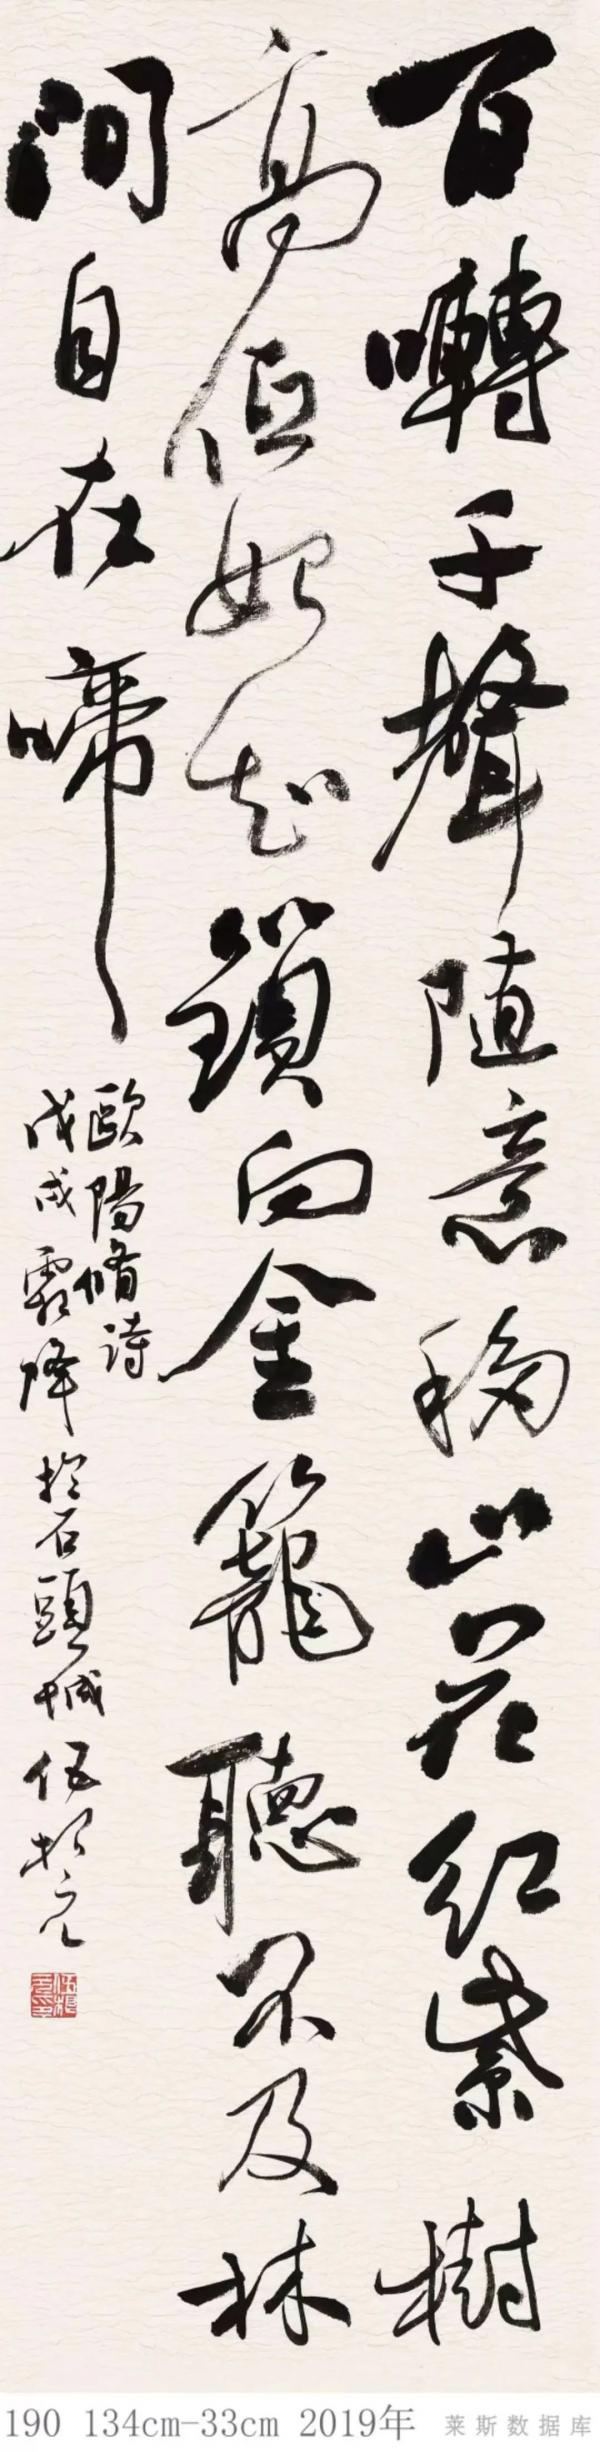 百囀千聲隨意移山花紅紫樹
高低始知鎖向金籠聽不及林
間自在啼
歐陽脩詩
戊戌霜降於石頭城伍相元
190 134cm-33cm 2019年
莱斯数据库